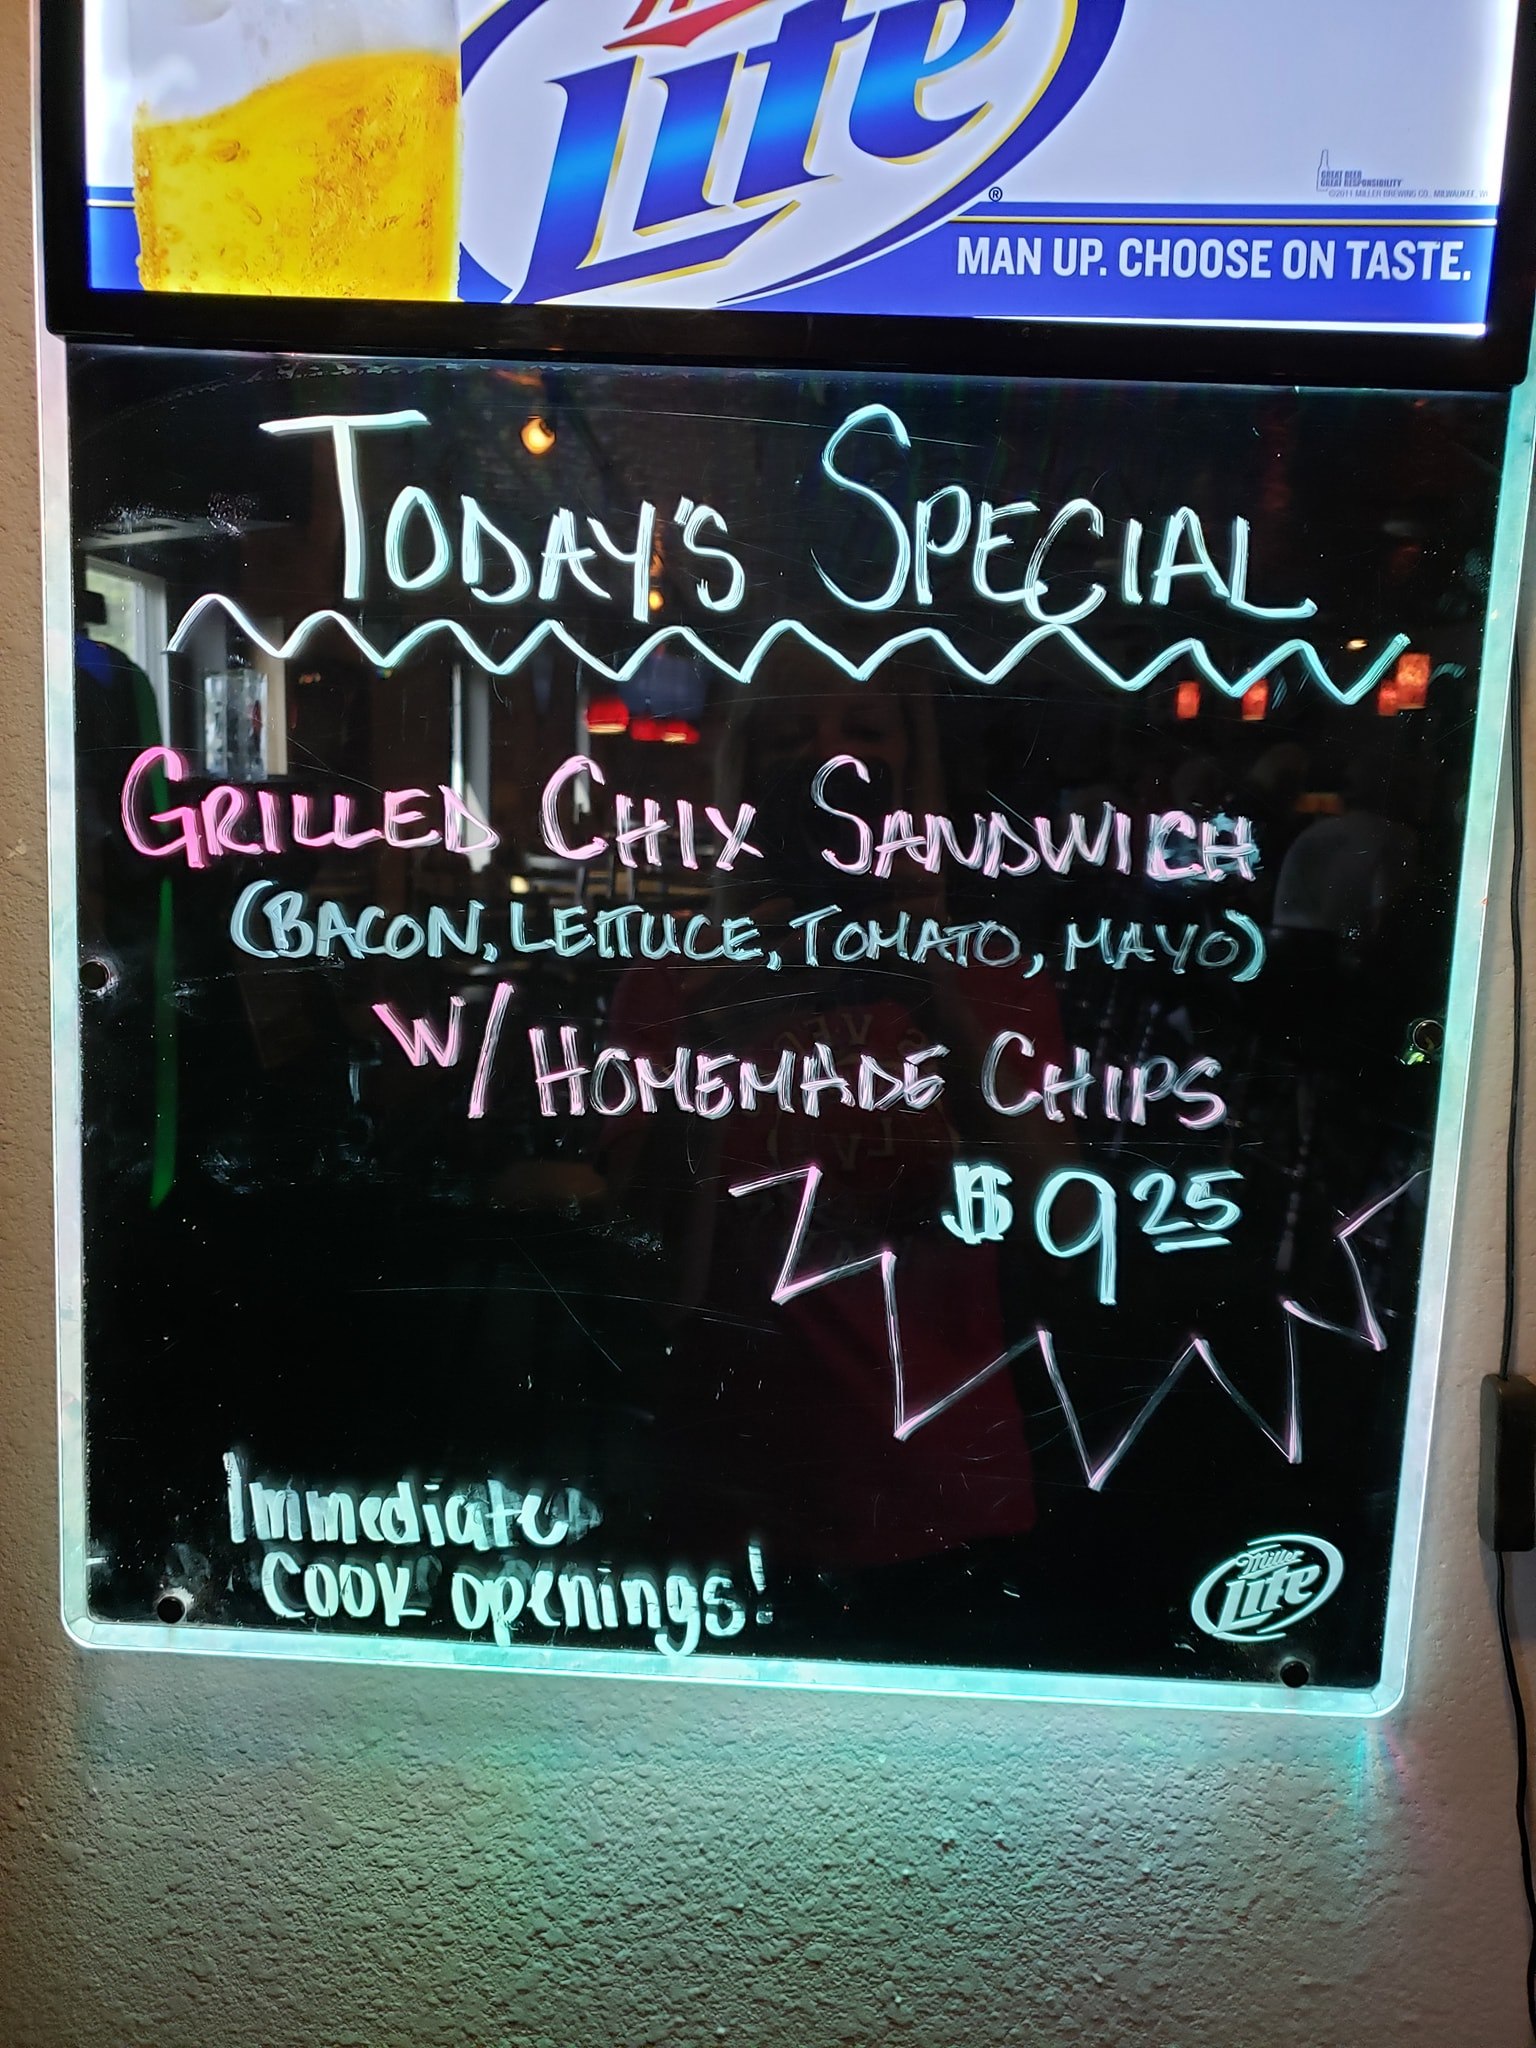 Lite®
GREAT BEER
GREAT RESPONSIBILITY
©2011 MILLER BREWING CO., MILWAUKEE, WI
MAN UP. CHOOSE ON TASTE.
TODAY'S SPECIAL
GRILLED CHIX SANDWICH
(BACON, LETTUCE, TOMATO, MAYO)
W/ HOMEMADE CHIPS
$9 25
Immediate
Cook openings!
Miller
Lite